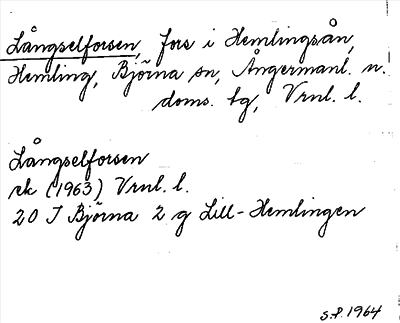 Långselforsen, fors i Hemlingsån,
Hemling, Björna sn, Ångermanl. n.
doms. tg, Vrnl. l.
Långselforsen
ek (1963) Vrnl. l.
20 J Björna 2 g Lill-Hemlingen
S.P. 1964